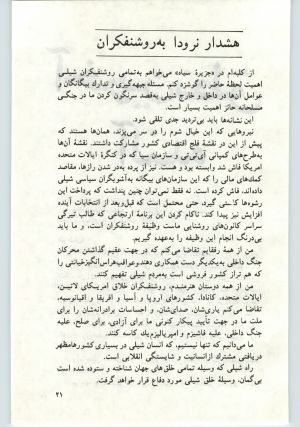 هشدار نرودا به‌روشنفکران
از کلبه‌ام در «جزیرهٔ سیاه» می‌خواهم به‌تمامی روشنفکران شیلی
اهمیت لحظهٔ حاضر را گوشزد کنم. مسئله جبهه‌گیری و تدارک بیگانگان و
عوامل آن‌ها در داخل و خارج شیلی به‌قصد سرنگون کردن ما در جنگی
مسلحانه حائز اهمیت بسیار است.
این نشانه‌ها باید بی‌تردید جدی تلقی شود.
نیروهایی که این خیال شوم را در سر می‌پزند، همان‌ها هستند که
پیش از این در نقشهٔ فلج اقتصادی کشور مشارکت داشتند. نقشهٔ آن‌ها
به‌طرح‌های کمپانی آی‌تی‌تی و سازمان سیا که در کنگرهٔ ایالات متحده
امریکا فاش شد وابسته بود و هست. نیز از پرده به‌در شدن رازها، مقاصد
کمک‌های مالی را که این سازمان‌های بیگانه به‌آشگریای سیاسی شیلی
داده‌اند، فاش کرده است. نه فقط نمی‌توان چنین پنداشت که پرداخت این
رشوه‌ها کاستی گیرد، حتی محتمل است که قبل‌وبعد از انتخابات آینده
افزایش نیز پیدا کند. ناکام کردن این برنامهٔ ارتجاعی که طالب تیرگی
سراسر کانون‌های روشنایی ماست وظیفهٔ روشنفکران است، و ما باید
بی‌درنگ انجام این وظیفه را به‌عهده گیریم.
من از همهٔ رفقایم تقاضا می‌کنم که در جهت عقیم گذاشتن محرکان
جنگ داخلی به‌یکدیگر دست همکاری دهند و عواقب هراس‌انگیز خیانتی را
که هم تراز کشور فروشی است به‌مردم شیلی تفهیم کنند.
من از همه دوستان هنرمندم، روشنفکران خلاق امریکای لاتین،
ایالات متحده، کانادا، کشورهای اروپا و آسیا و افریقا و اقیانوسیه،
تقاضا می‌کنم یاری‌شان، صدای‌شان، و احساسات برادرانه‌شان را با
ملت ما در جهت تأیید پیکار کنونی ما برای آزادی، برای صلح، علیه
جنگ داخلی، علیه فاشیزم و امپریالیزم یک کاسه کنند.
ما می‌دانیم که تنها نیستیم، که انسان شیلی در بسیاری کشورها مهر
دریافتی مشترک از انسانیت و شایستگی انقلابی است.
راه شیلی که وسیله تمامی خلق‌های جهان شناخته و ستوده شده است
بی‌گمان، وسیلهٔ خلق شیلی مورد دفاع قرار خواهد گرفت.
۲۱